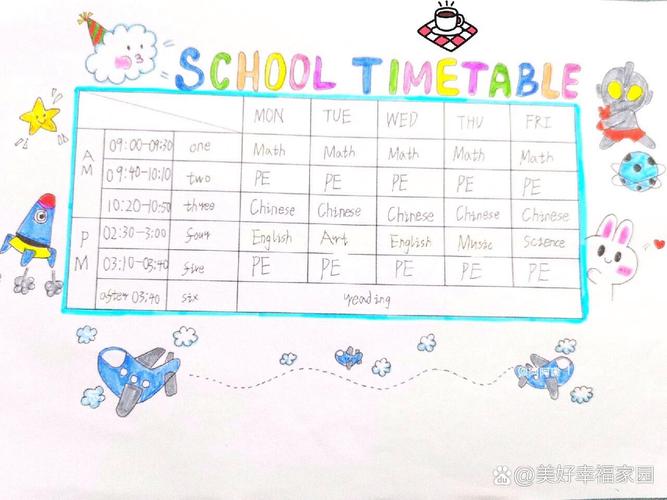 SCHOOL TIMETABLE
MON TUE WED THU FRI
AM
09:00-09:30 one Math Math Math Math Math
09:40-10:10 two PE PE PE PE PE
10:20-10:50 three Chinese Chinese Chinese Chinese Chinese
PM
02:30-3:00 four English Art English Music Science
03:10-03:40 five PE PE PE PE PE
after 03:40 six reading
@美好幸福家园